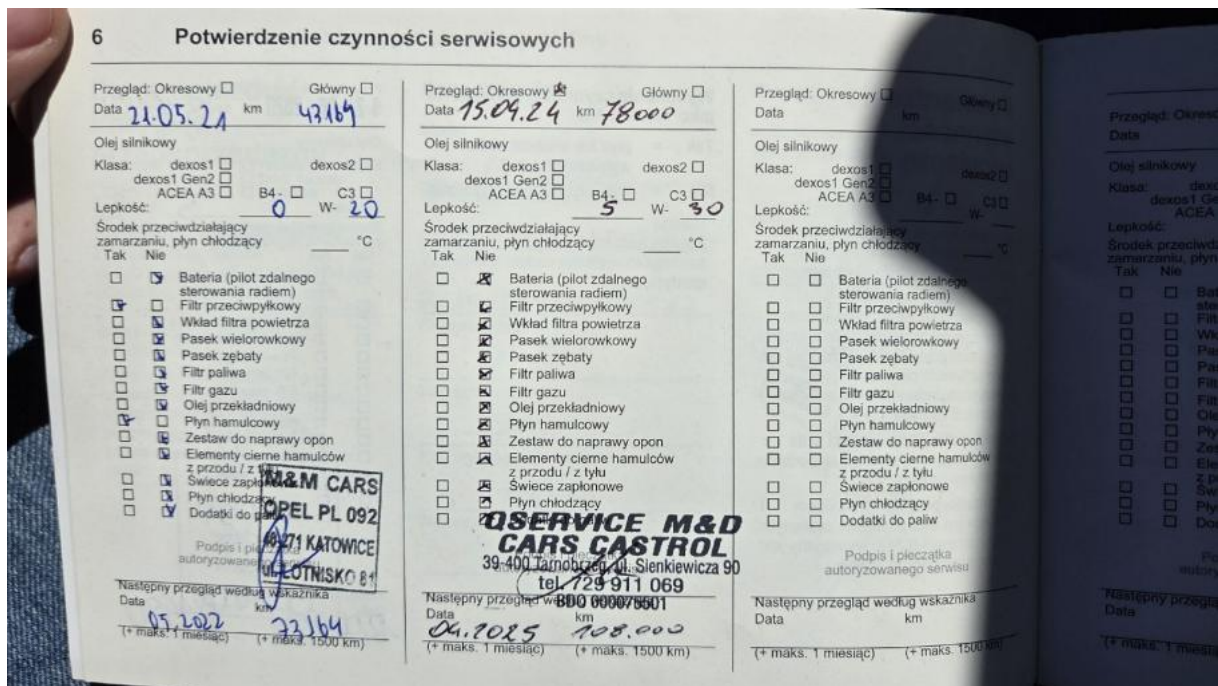 6 Potwierdzenie czynności serwisowych
Przegląd: Okresowy ☐ Główny ☐
Data 21.05.21 km 43164
Olej silnikowy
Klasa: dexos1 ☐ dexos2 ☐
dexos1 Gen2 ☐
ACEA A3 ☐ B4- ☐ C3 ☐
Lepkość: 0 W- 20
Środek przeciwdziałający
zamarzaniu, płyn chłodzący °C
Tak Nie
Bateria (pilot zdalnego
sterowania radiem)
Filtr przeciwpyłkowy
Wkład filtra powietrza
Pasek wielorowkowy
Pasek zębaty
Filtr paliwa
Filtr gazu
Olej przekładniowy
Płyn hamulcowy
Zestaw do naprawy opon
Elementy cierne hamulców
z przodu / z tyłu
Świece zapłonowe
Płyn chłodzący
Dodatki do paliw
M&M CARS
OPEL PL 092
KATOWICE
ul. LOTNISKO 81
Podpis i pieczątka
autoryzowanego serwisu
Następny przegląd według wskaźnika
Data km
05.2022 73164
(+ maks. 1 miesiąc) (+ maks. 1500 km)
Przegląd: Okresowy ☒ Główny ☐
Data 15.04.24 km 78000
Olej silnikowy
Klasa: dexos1 ☐ dexos2 ☐
dexos1 Gen2 ☐
ACEA A3 ☐ B4- ☐ C3 ☐
Lepkość: 5 W- 30
Środek przeciwdziałający
zamarzaniu, płyn chłodzący °C
Tak Nie
Bateria (pilot zdalnego
sterowania radiem)
Filtr przeciwpyłkowy
Wkład filtra powietrza
Pasek wielorowkowy
Pasek zębaty
Filtr paliwa
Filtr gazu
Olej przekładniowy
Płyn hamulcowy
Zestaw do naprawy opon
Elementy cierne hamulców
z przodu / z tyłu
Świece zapłonowe
Płyn chłodzący
QSERVICE M&D
CARS CASTROL
39-400 Tarnobrzeg, ul. Sienkiewicza 90
tel. 729 911 069
BDO 000076501
Następny przegląd według wskaźnika
Data km
04.2025 108.000
(+ maks. 1 miesiąc) (+ maks. 1500 km)
Przegląd: Okresowy ☐ Główny ☐
Data km
Olej silnikowy
Klasa: dexos1 ☐ dexos2 ☐
dexos1 Gen2 ☐
ACEA A3 ☐ B4- ☐ C3 ☐
Lepkość: W-
Środek przeciwdziałający
zamarzaniu, płyn chłodzący °C
Tak Nie
Bateria (pilot zdalnego
sterowania radiem)
Filtr przeciwpyłkowy
Wkład filtra powietrza
Pasek wielorowkowy
Pasek zębaty
Filtr paliwa
Filtr gazu
Olej przekładniowy
Płyn hamulcowy
Zestaw do naprawy opon
Elementy cierne hamulców
z przodu / z tyłu
Świece zapłonowe
Płyn chłodzący
Dodatki do paliw
Podpis i pieczątka
autoryzowanego serwisu
Następny przegląd według wskaźnika
Data km
(+ maks. 1 miesiąc) (+ maks. 1500 km)
Przegląd:
Data
Olej silnikowy
Klasa:
Lepkość:
Tak Nie
Data